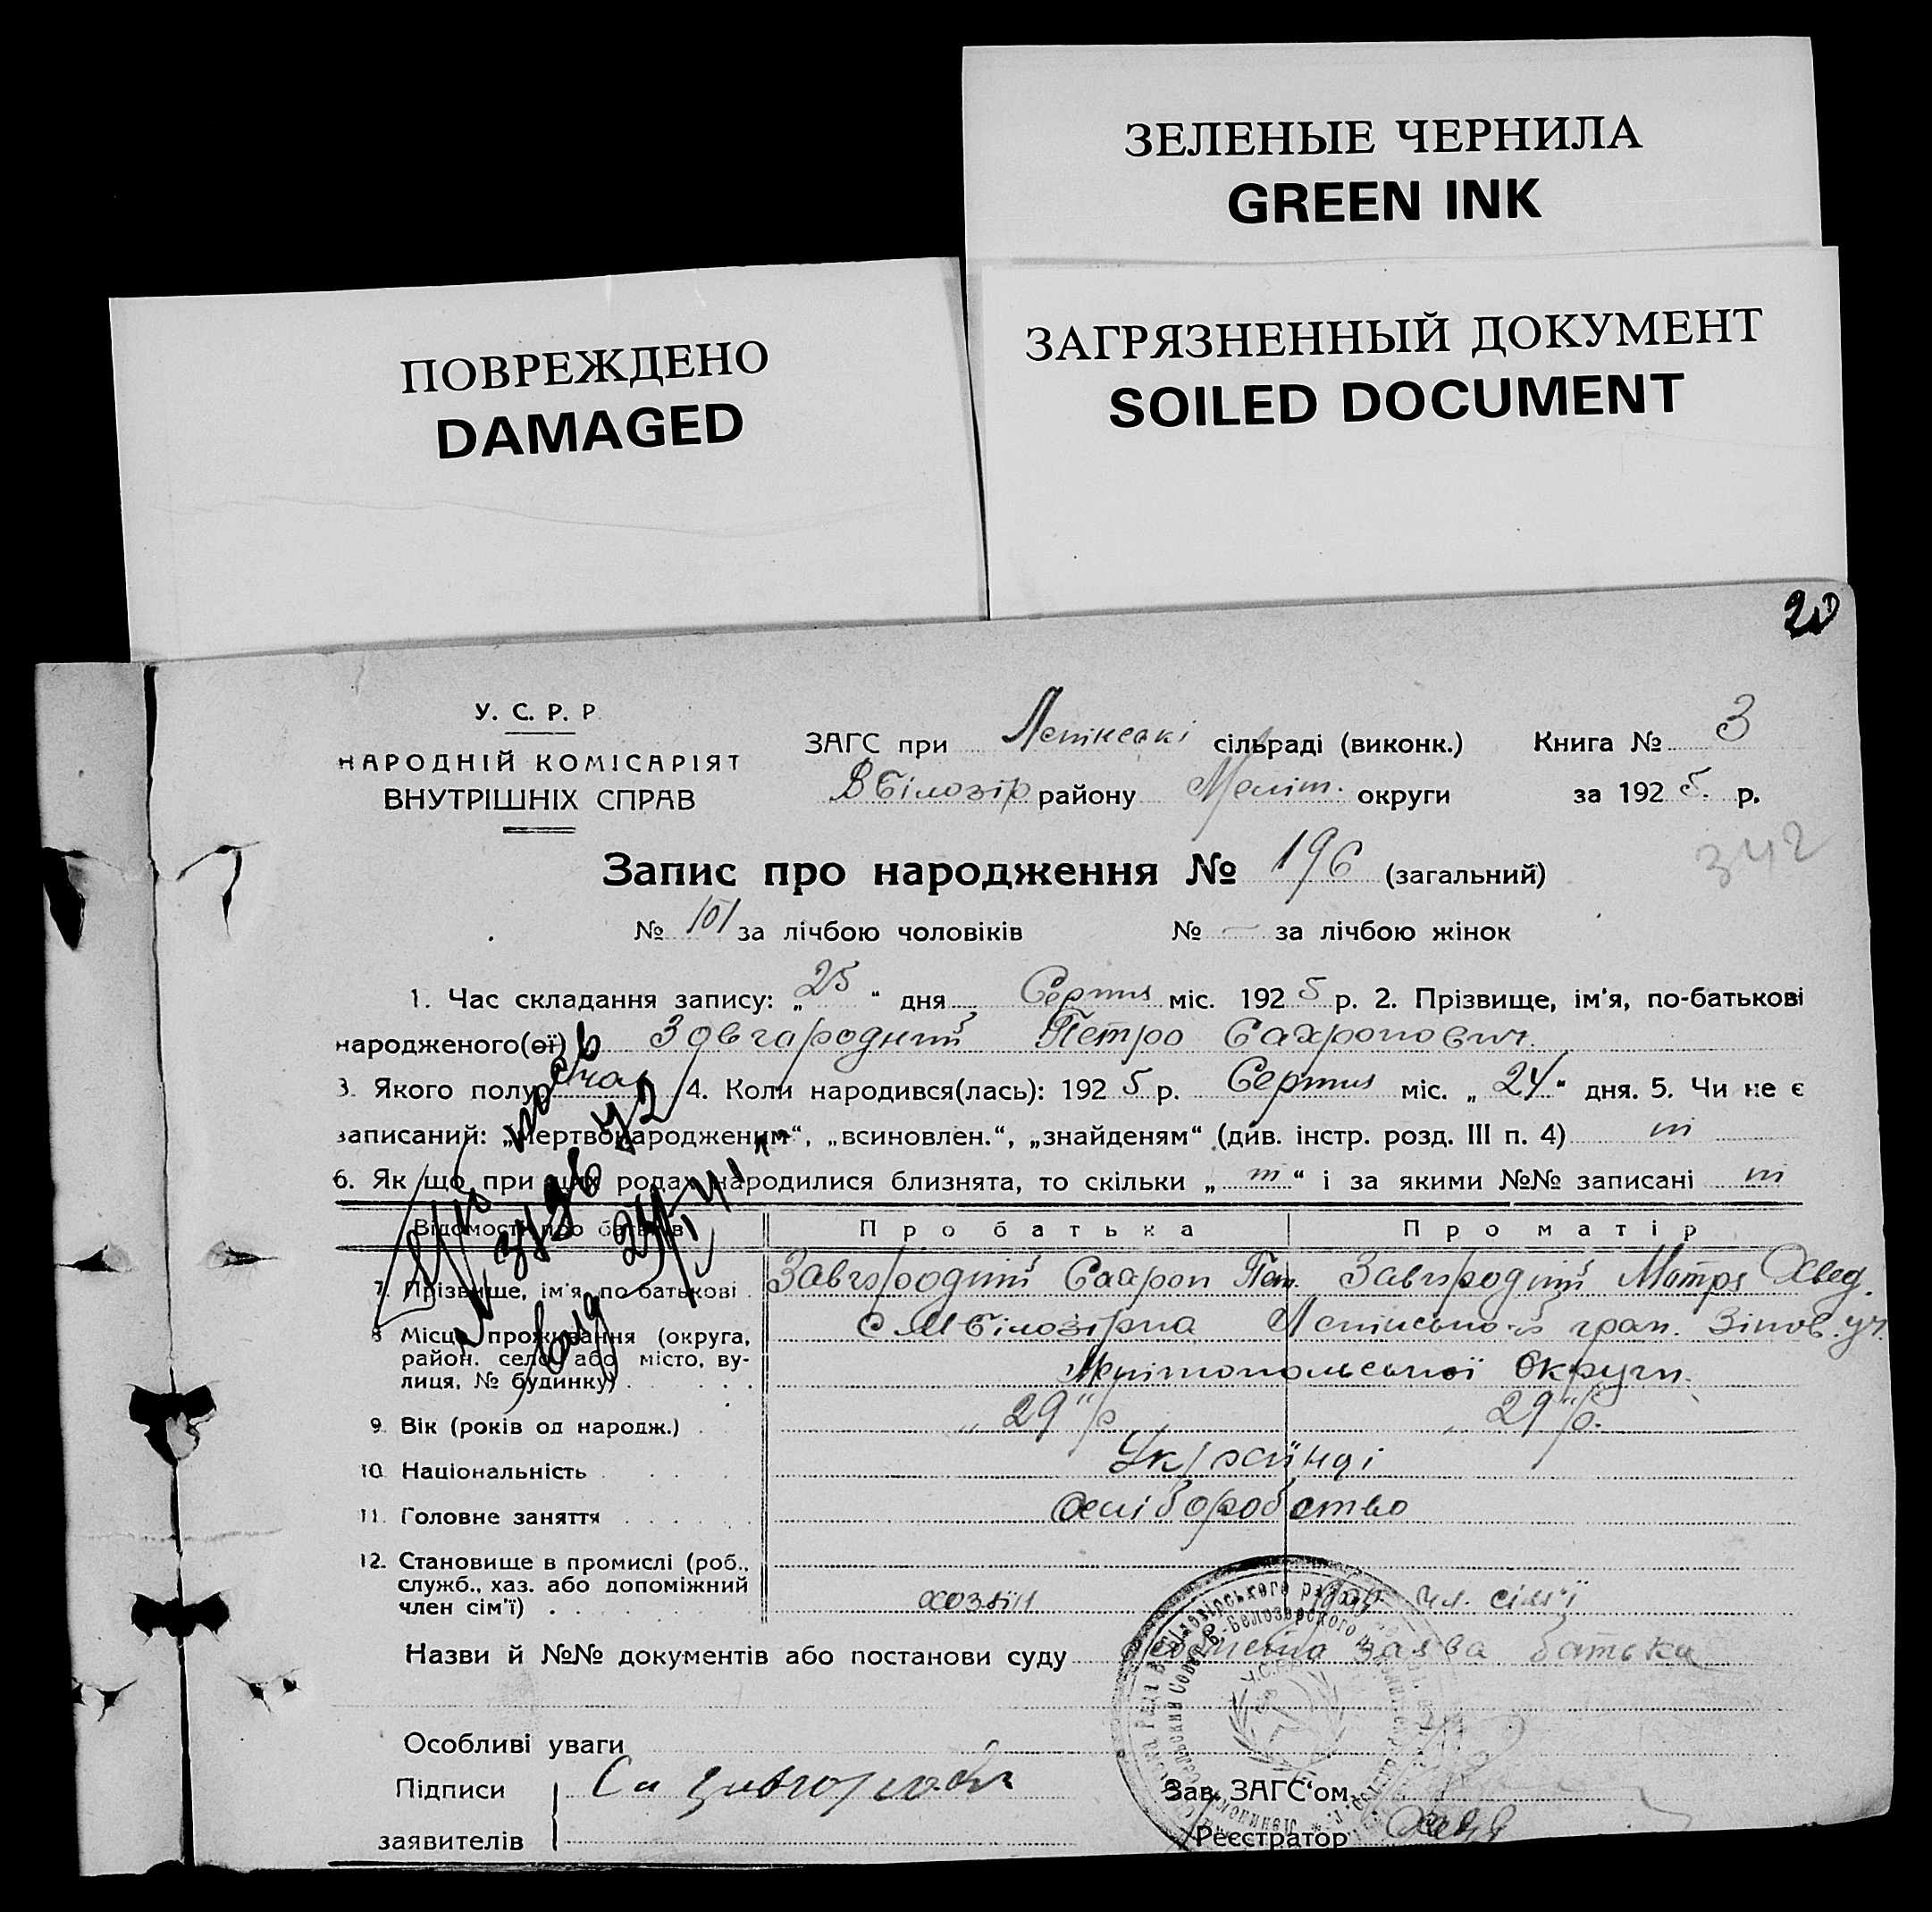 ЗЕЛЕНЫЕ ЧЕРНИЛА
GREEN INK
ПОВРЕЖДЕНО
DAMAGED
ЗАГРЯЗНЕННЫЙ ДОКУМЕНТ
SOILED DOCUMENT
20
У. С. Р. Р.
НАРОДНІЙ КОМІСАРІЯТ
ВНУТРІШНІХ СПРАВ
ЗАГС при сільраді (виконк.) Книга № 3
В Білозір району Меліт. округи за 192 5 р.
342
Запис про народження № 196 (загальний)
№ 101 за лічбою чоловіків № — за лічбою жінок
1. Час складання запису: „ 25 “ дня Серпня міс. 192 5 р. 2. Прізвище, ім'я, по-батькові
народженого(ої) Завгородний Петро Сахронович
3. Якого полу 4. Коли народився(лась): 192 5 р. Серпня міс. „ 24 “ дня. 5. Чи не є
записаний: „мертвонародженим“, „всиновлен.“, „знайденям“ (див. інстр. розд. III п. 4) ні
6. Як що при цих родах народилися близнята, то скільки „ ні “ і за якими №№ записані ні
Відомости про батьків Про батька Про матір
7. Прізвище, ім'я, по-батькові Завгородній Сахрон Пет. Завгородній Мотря Хвед.
8. Місце проживання (округа, С М Білозірка
район, село або місто, ву-
лиця, № будинку) Мелітопольської Округи.
9. Вік (років од народж.) „ 29 “ р „ 29 “ р.
10. Національність Українці
11. Головне заняття хліборобство
12. Становище в промислі (роб.,
служб., хаз. або допоміжний
член сім'ї) хозяїн чл. сім'ї
Назви й №№ документів або постанови суду заява батька
Особливі уваги
Підписи
заявителів
Зав. ЗАГС'ом
Реєстратор